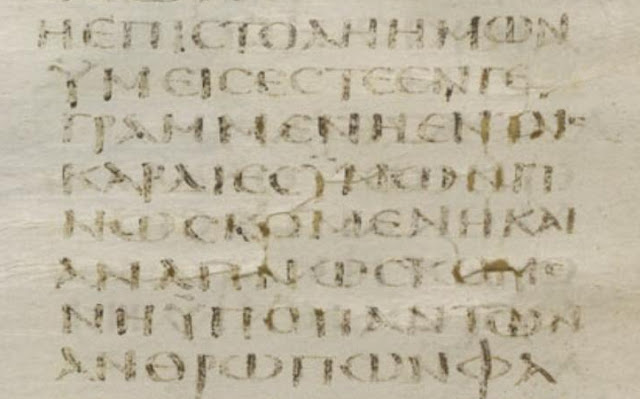 ΗΕΠΙϹΤΟΛΗΗΜΩΝ
ΫΜΕΙϹΕϹΤΕΕΝΓΕ
ΓΡΑΜΜΕΝΗΕΝΤΑΙϹ
ΚΑΡΔΙΕϹΫΜΩΝΓΙ
ΝΩϹΚΟΜΕΝΗΚΑΙ
ΑΝΑΓΙΝΩϹΚΟΜΕ
ΝΗΫΠΟΠΑΝΤΩΝ
ΑΝΘΡΩΠΩΝΦΑ